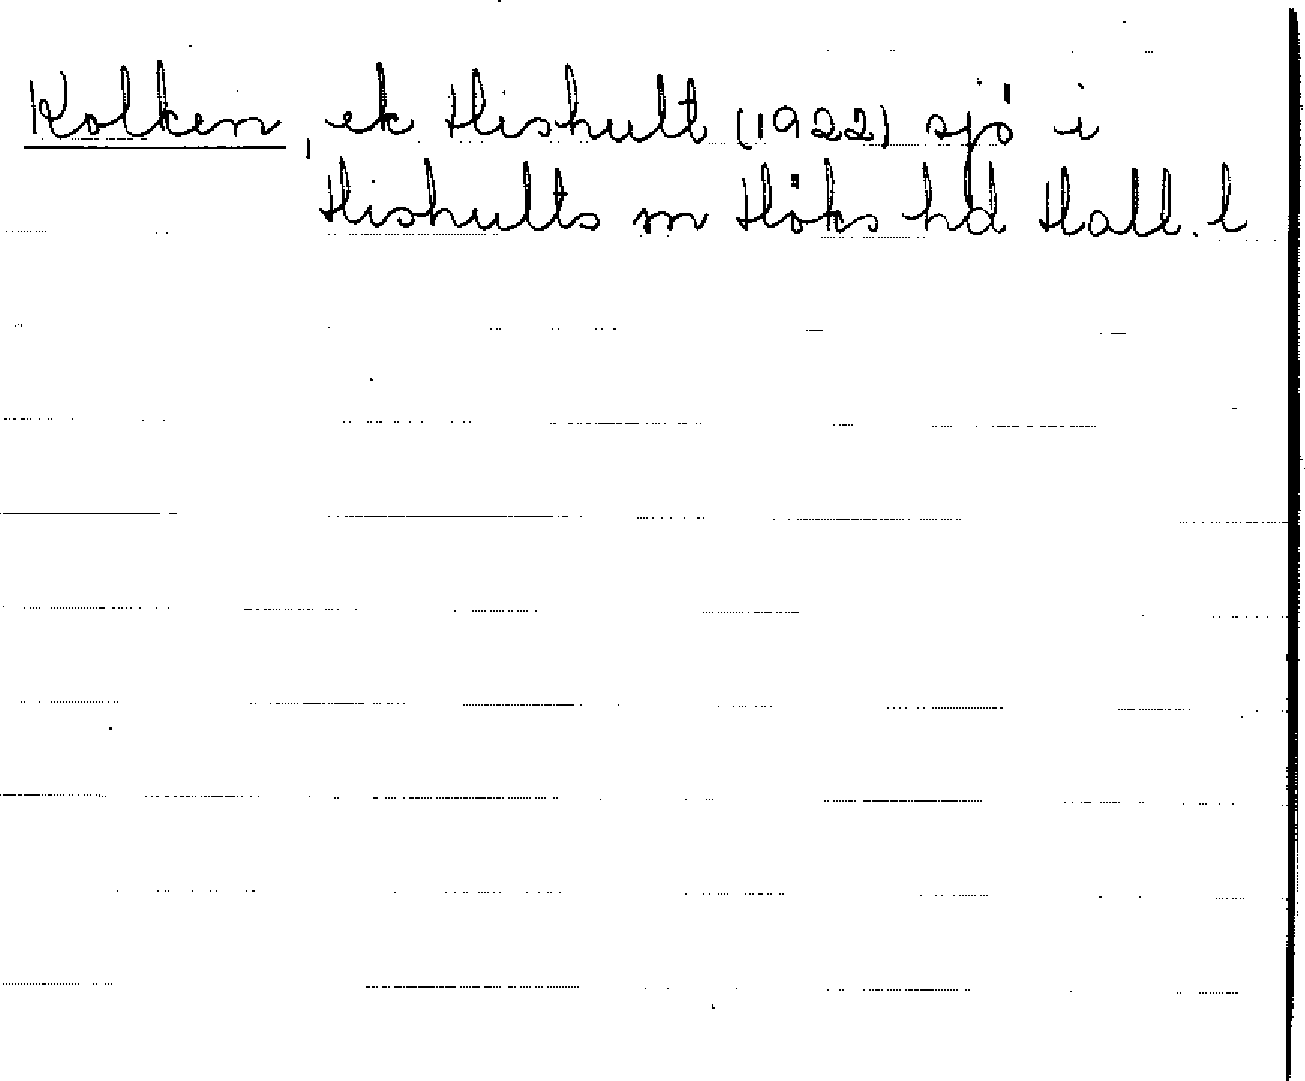 Kolken, ek Hishult (1922) sjö i
Hishults sn Höks hd Hall. l